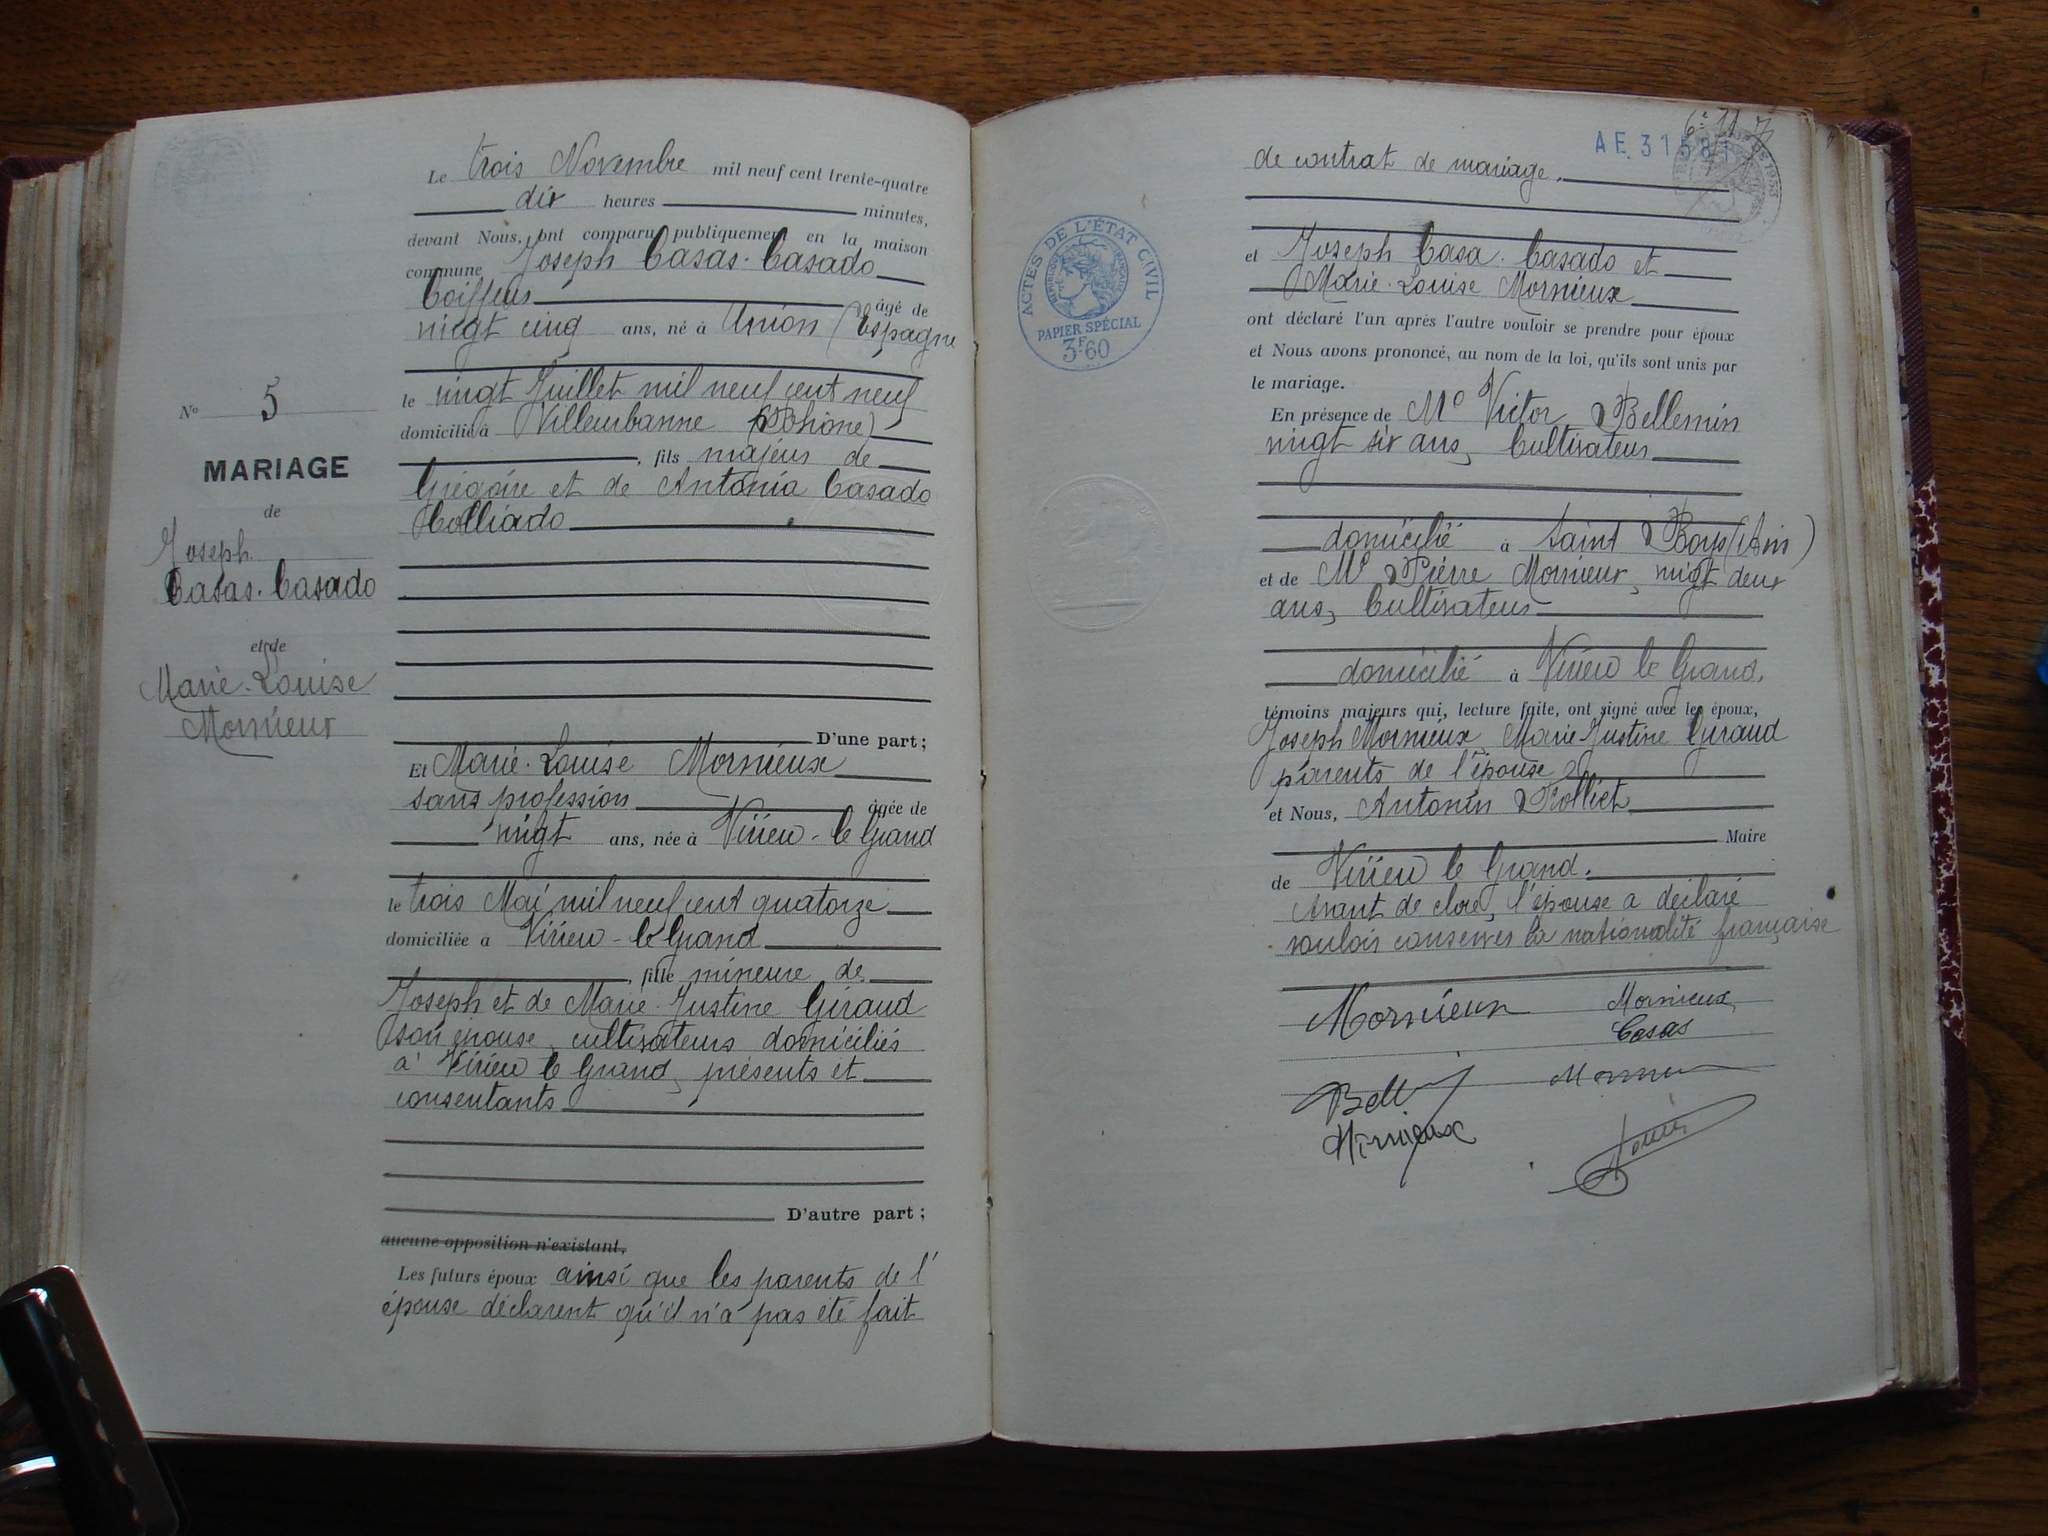 Le trois Novembre mil neuf cent trente-quatre
dix heures minutes,
devant Nous, ont comparu publiquement en la maison
commune Joseph Casas-Casado
Coiffeur âgé de
vingt cinq ans, né à Union (Espagne
le vingt Juillet mil neuf cent neuf
domicilié à Villeurbanne (Rhône)
, fils majeur de
Grégoire et de Antonia Casado
Colliado
D'une part;
Et Marie-Louise Mornieux
sans profession âgée de
vingt ans, née à Virieu-le Grand
le trois Mai mil neuf cent quatorze
domiciliée à Virieu-le Grand
, fille mineure de
Joseph et de Marie-Justine Giraud
son épouse, cultivateurs domiciliés
à Virieu le Grand, présents et
consentants
D'autre part;
aucune opposition n'existant,
Les futurs époux ainsi que les parents de l'
épouse déclarent qu'il n'a pas été fait
No 5
MARIAGE
de
Joseph
Casas-Casado
et de
Marie-Louise
Mornieux
AE.
de contrat de mariage.
ACTES DE L'ÉTAT CIVIL
RÉPUBLIQUE FRANÇAISE
PAPIER SPÉCIAL
3F60
et Joseph Casa-Casado et
Marie-Louise Mornieux
ont déclaré l'un après l'autre vouloir se prendre pour époux
et Nous avons prononcé, au nom de la loi, qu'ils sont unis par
le mariage.
En présence de Mr Victor Bellemin
vingt six ans, Cultivateur
domicilié à Saint Boys (Ain)
et de Mr Pierre Mornieux, vingt deux
ans, Cultivateur
domicilié à Virieu le Grand,
témoins majeurs qui, lecture faite, ont signé avec les époux,
Joseph Mornieux Marie Justine Guraud
parents de l'épouse
et Nous, Antonin Rolliet
Maire
de Virieu le Grand.
Avant de clore, l'épouse a déclaré
vouloir conserver la nationalité française
Mornieux Mornieux
Casas
Mornieux